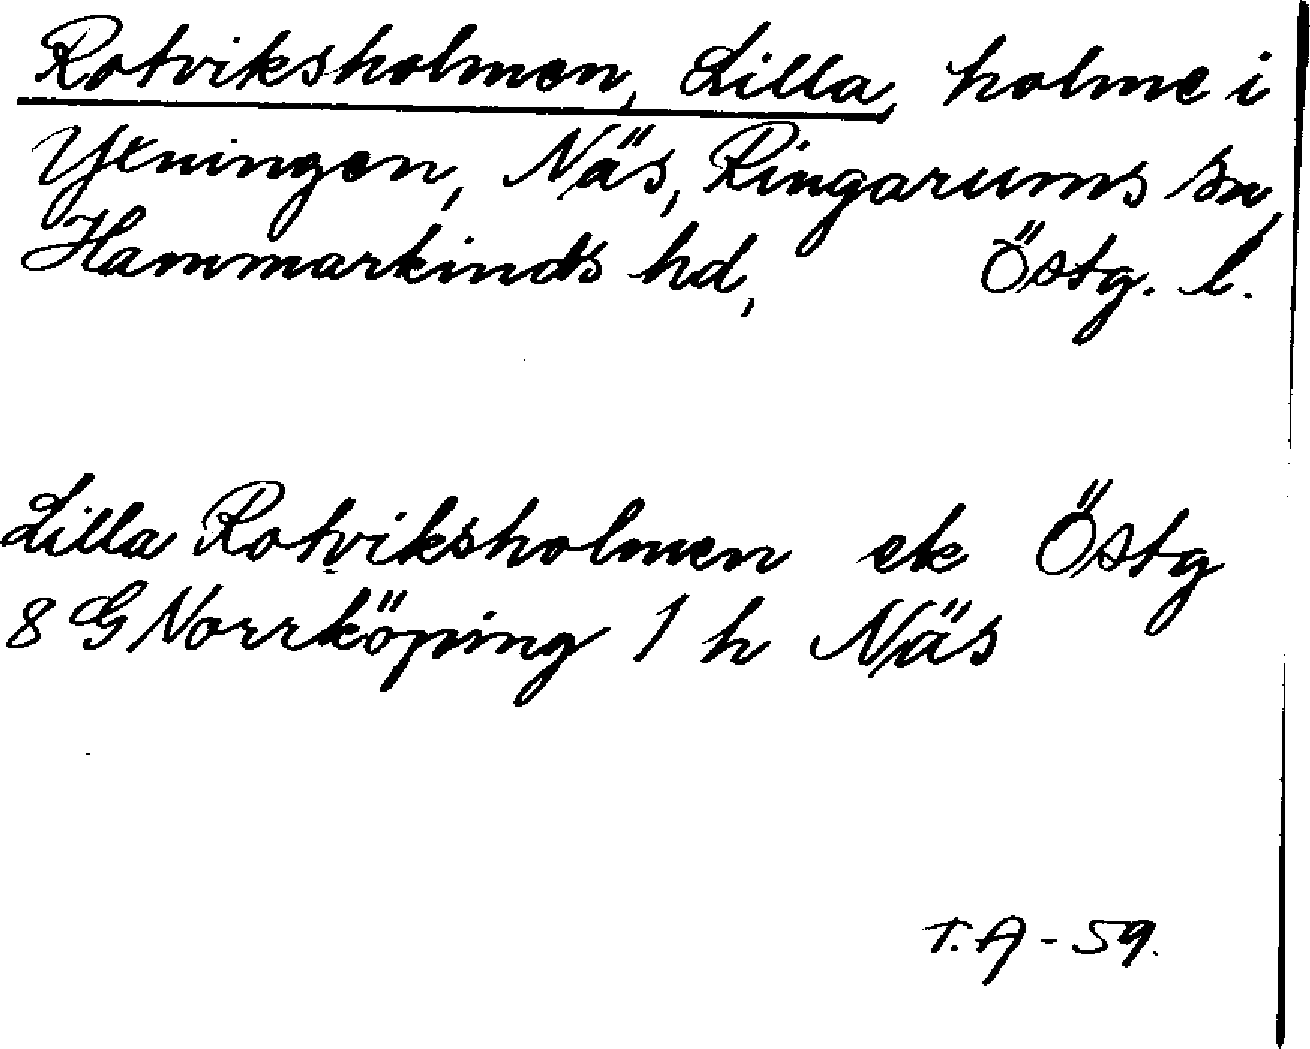 Rotviksholmen, Lilla, holme i
Yxningen, Näs, Ringarums sn,
Hammarkinds hd, Östg. l.
Lilla Rotviksholmen ek Östg
8 G Norrköping 1 h Näs
T. A - 59.